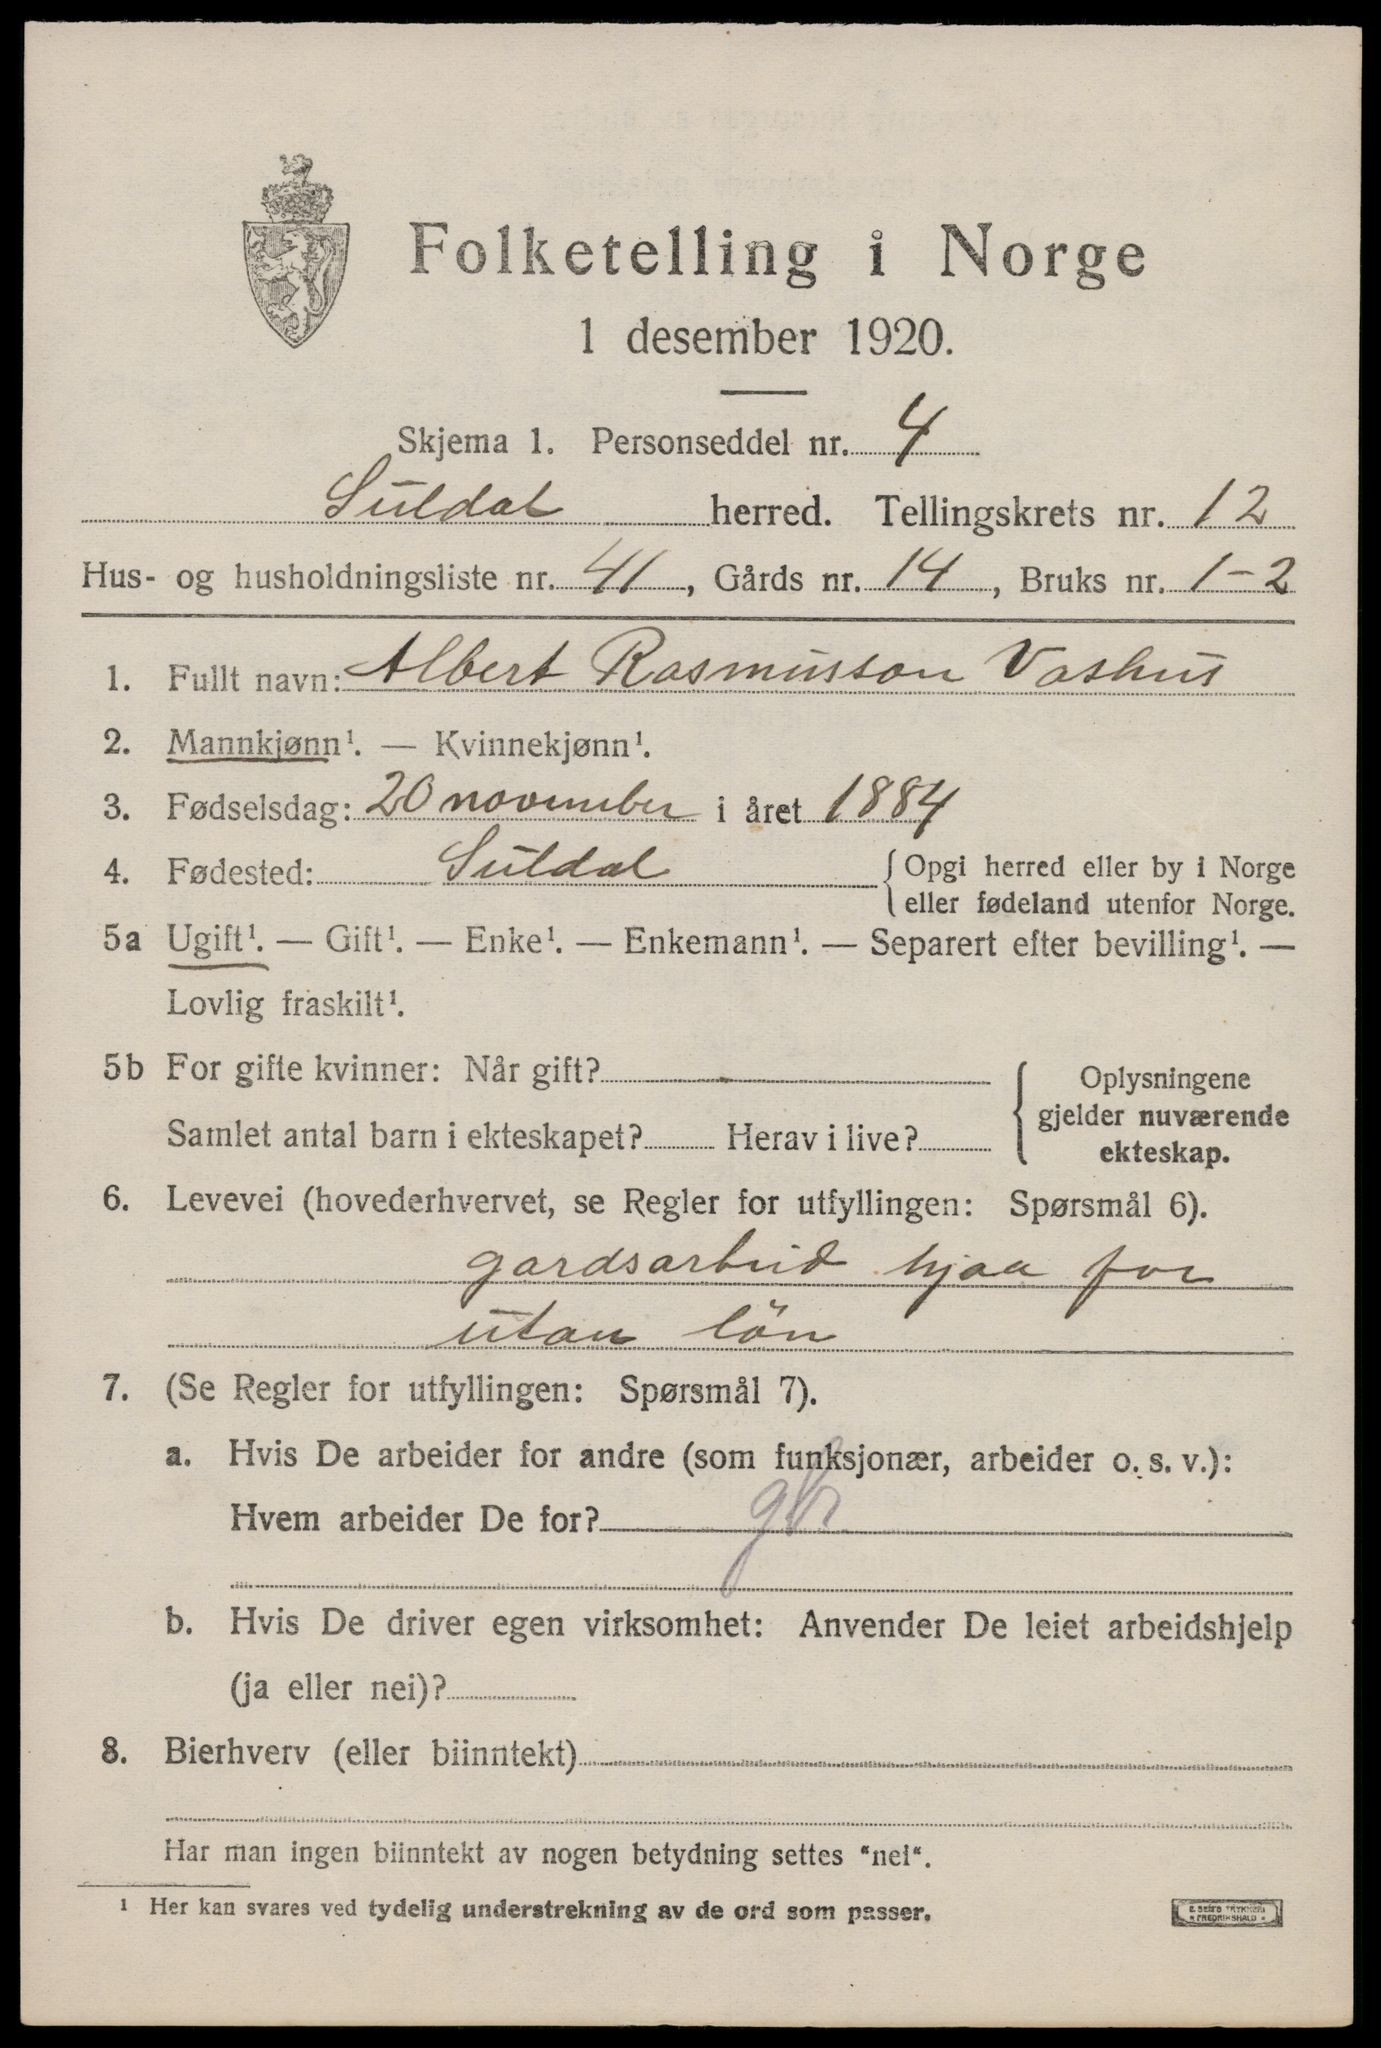 Folketelling i Norge
1 desember 1920.
Skjema 1. Personseddel nr. 4
Suldal herred. Tellingskrets nr. 12
Hus- og husholdningsliste nr. 41, Gårds nr. 14, Bruks nr. 1-2
1. Fullt navn: Albert Rasmusson Vashus
2. Mannkjønn¹. — Kvinnekjønn¹.
3. Fødselsdag: 20 november i året 1884
4. Fødested: Suldal {Opgi herred eller by i Norge
eller fødeland utenfor Norge.
5a Ugift¹. — Gift¹. — Enke¹. — Enkemann¹. — Separert efter bevilling¹. —
Lovlig fraskilt¹.
5b For gifte kvinner: Når gift?
Samlet antal barn i ekteskapet? Herav i live?
{ Oplysningene
gjelder nuværende
ekteskap.
6. Levevei (hovederhvervet, se Regler for utfyllingen: Spørsmål 6).
gardsarbeid hjaa far
utan løn
7. (Se Regler for utfyllingen: Spørsmål 7).
a. Hvis De arbeider for andre (som funksjonær, arbeider o. s. v.):
Hvem arbeider De for?
b. Hvis De driver egen virksomhet: Anvender De leiet arbeidshjelp
(ja eller nei)?
8. Bierhverv (eller biinntekt)
Har man ingen biinntekt av nogen betydning settes "nei".
¹ Her kan svares ved tydelig understrekning av de ord som passer.
E. SEMS TRYKKERI
FREDRIKSHALD